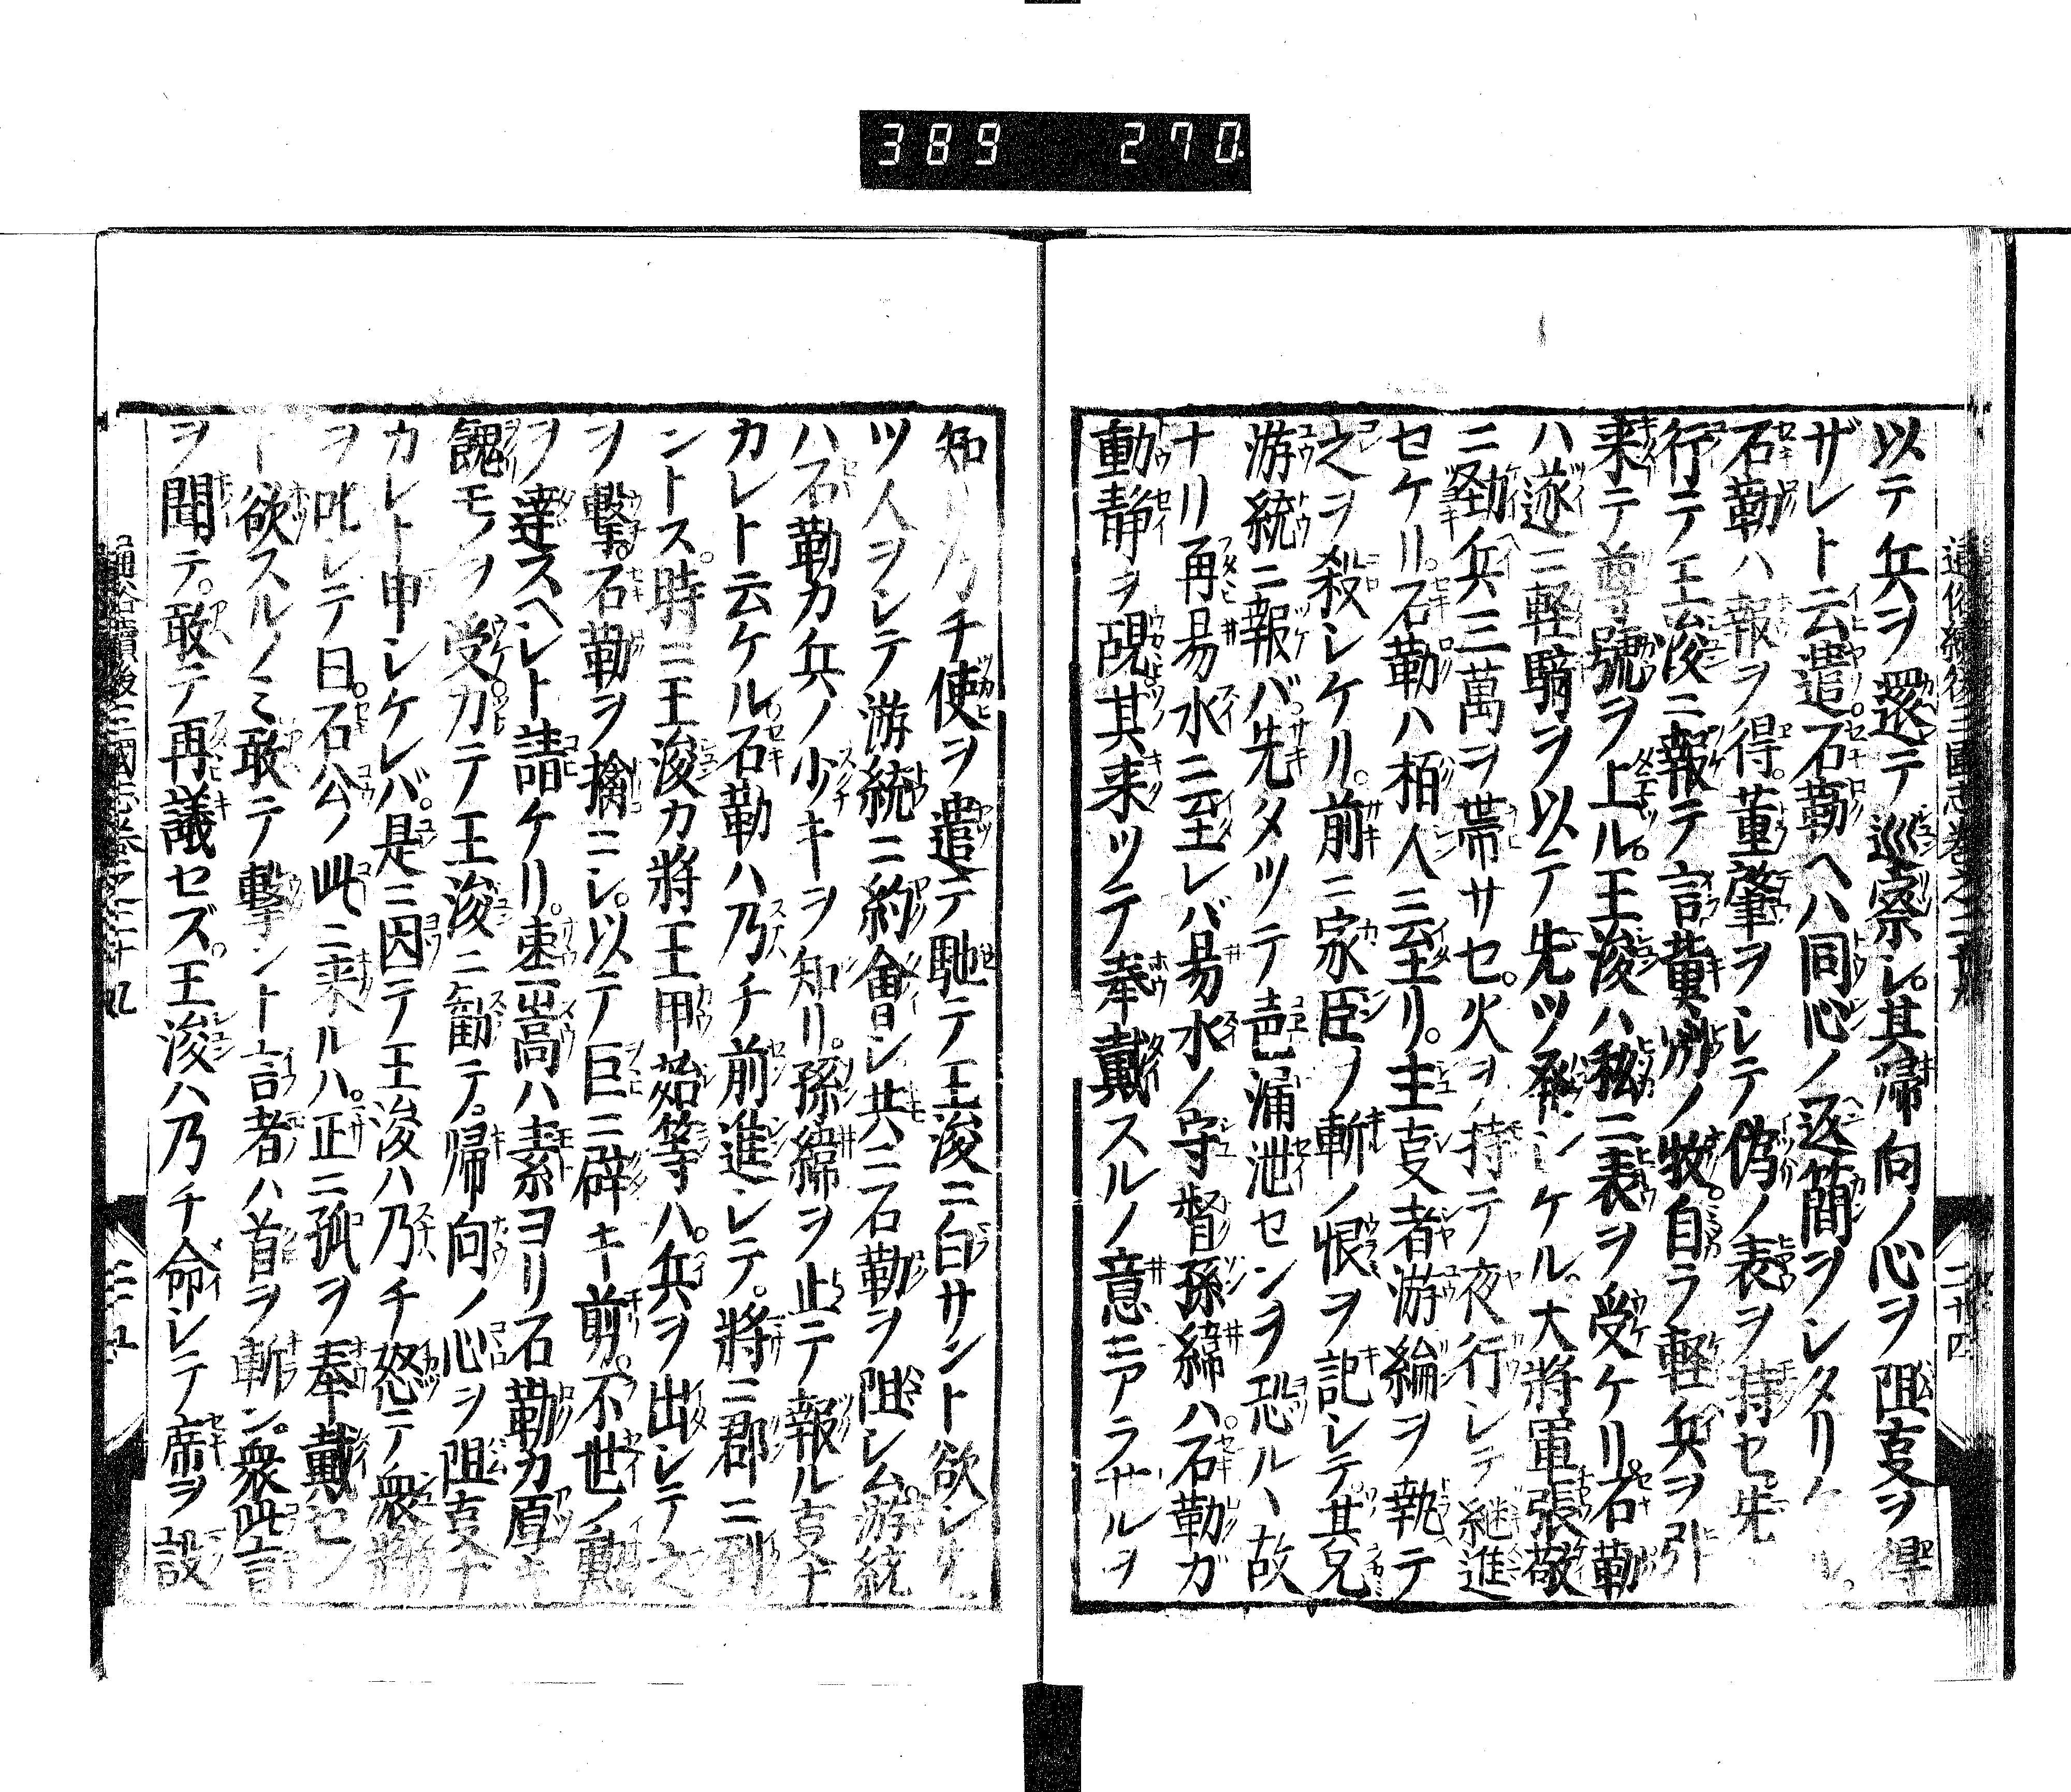 389 270
通俗續後三國志卷之二十九
二十四
以テ兵ヲ還テ巡察シ其帰向ノ心ヲ阻叓ヲ得
ザレト云遣。石勒ヘハ同心ノ返簡ヲシタリケル。
石勒ハ報ヲ得。董肇ヲシテ偽ノ表ヲ持セ先
行テ王浚ニ報テ言冀州ノ牧。自ラ軽兵ヲ引
来テ尊號ヲ上ル。王浚ハ私ニ表ヲ受ケリ。石勒
ハ遂ニ軽騎ヲ以テ先ツ発シケル。大將軍張敬
ニ勁兵三萬ヲ帯サセ。火ヲ持テ夜行シテ継進
セケリ。石勒ハ栢人ニ至リ。主叓者游綸ヲ執テ
之ヲ殺シケリ。前ニ家臣ノ斬ノ恨ヲ記シテ。其兄
游統ニ報バ。先タツテ㐪漏泄センヲ恐ル丶故
ナリ再易水ニ至レバ易水ノ守督孫緯ハ。石勒ガ
動静ヲ覘其来ツテ奉戴スルノ意ニアラサルヲ
知乃チ使ヲ遣テ馳テ王浚ニ白サント欲シ
ツ人ヲシテ游統ニ約會シ共ニ石勒ヲ阻シム。游統
ハ石勒カ兵ノ少キヲ知リ。孫緯ヲ止テ報ル叓ナ
カレト云ケル。石勒ハ乃チ前進シテ。將ニ郡ニ到
ントス。時ニ王浚カ將王甲始等ハ。兵ヲ出シテ之
ヲ撃。石勒ヲ擒ニシ。以テ巨ニ辟キ前。不世ノ勳
ヲ達スヘシト請ケリ。棗嵩ハ素ヨリ石勒カ厚キ
餽モノヲ受。力テ王浚ニ勧テ。帰向ノ心ヲ阻叓ナ
カレト申シケレバ。是ニ因テ王浚ハ乃チ怒テ衆將
ヲ叱シテ曰。石公ノ此ニ来ルハ。正ニ孤ヲ奉戴セン
ト欲スルノミ敢テ撃ント言者ハ首ヲ斬ン。衆此言
ヲ聞テ。敢テ再議セズ。王浚ハ乃チ命シテ席ヲ設
通俗續後三國志卷之二十九